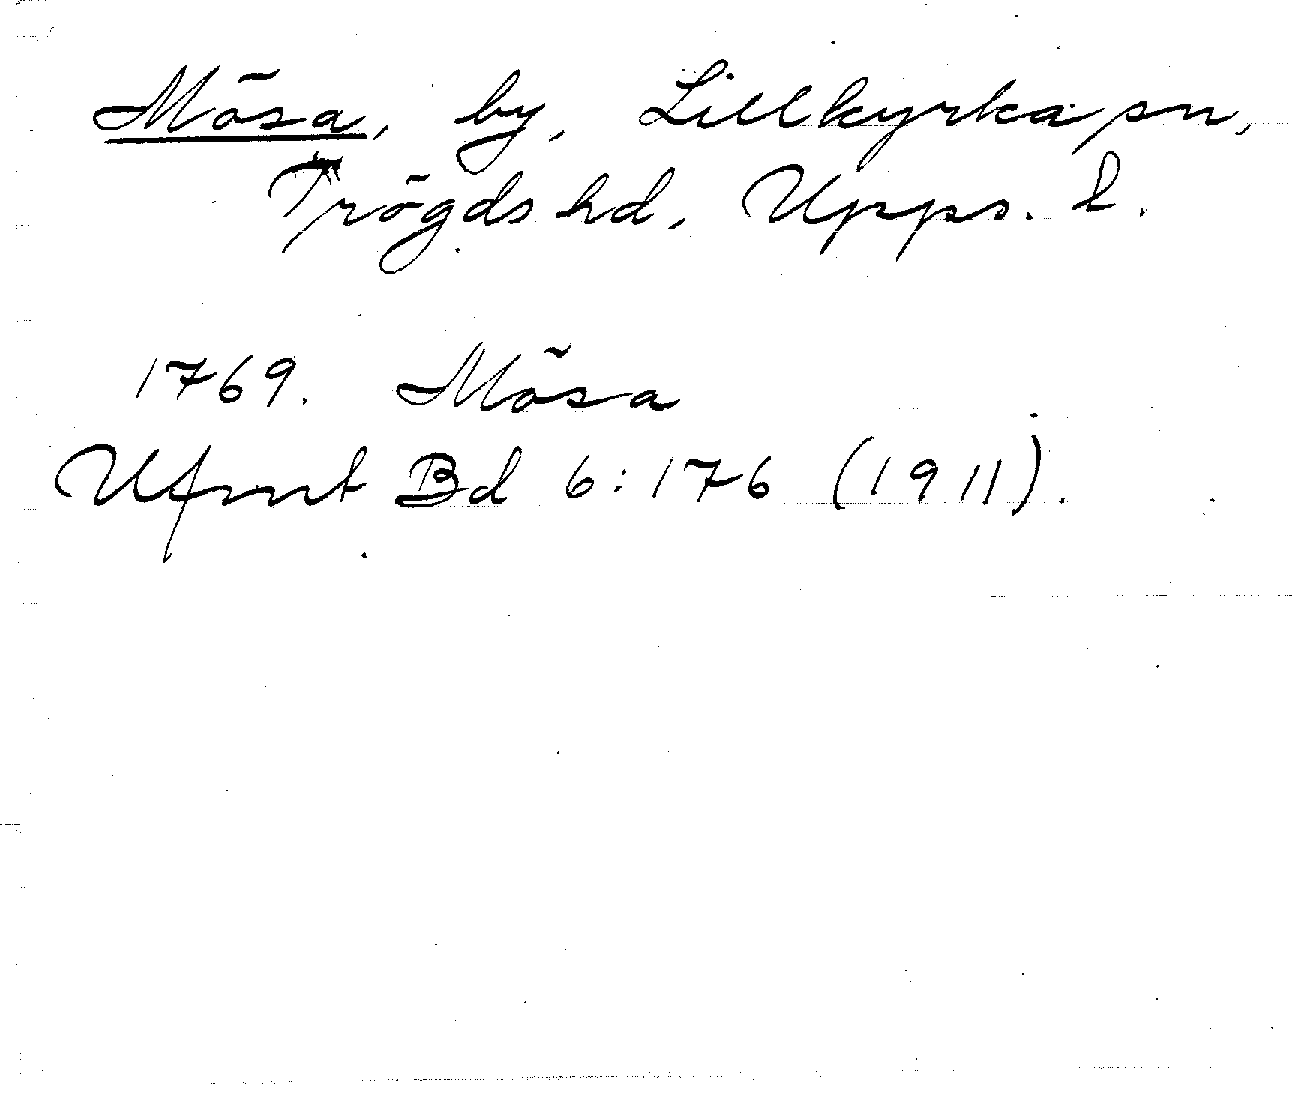 Mösa, by, Lillkyrka sn,
Trögds hd, Upps. l.
1769. Mösa
Ufmt Bd 6:176 (1911).